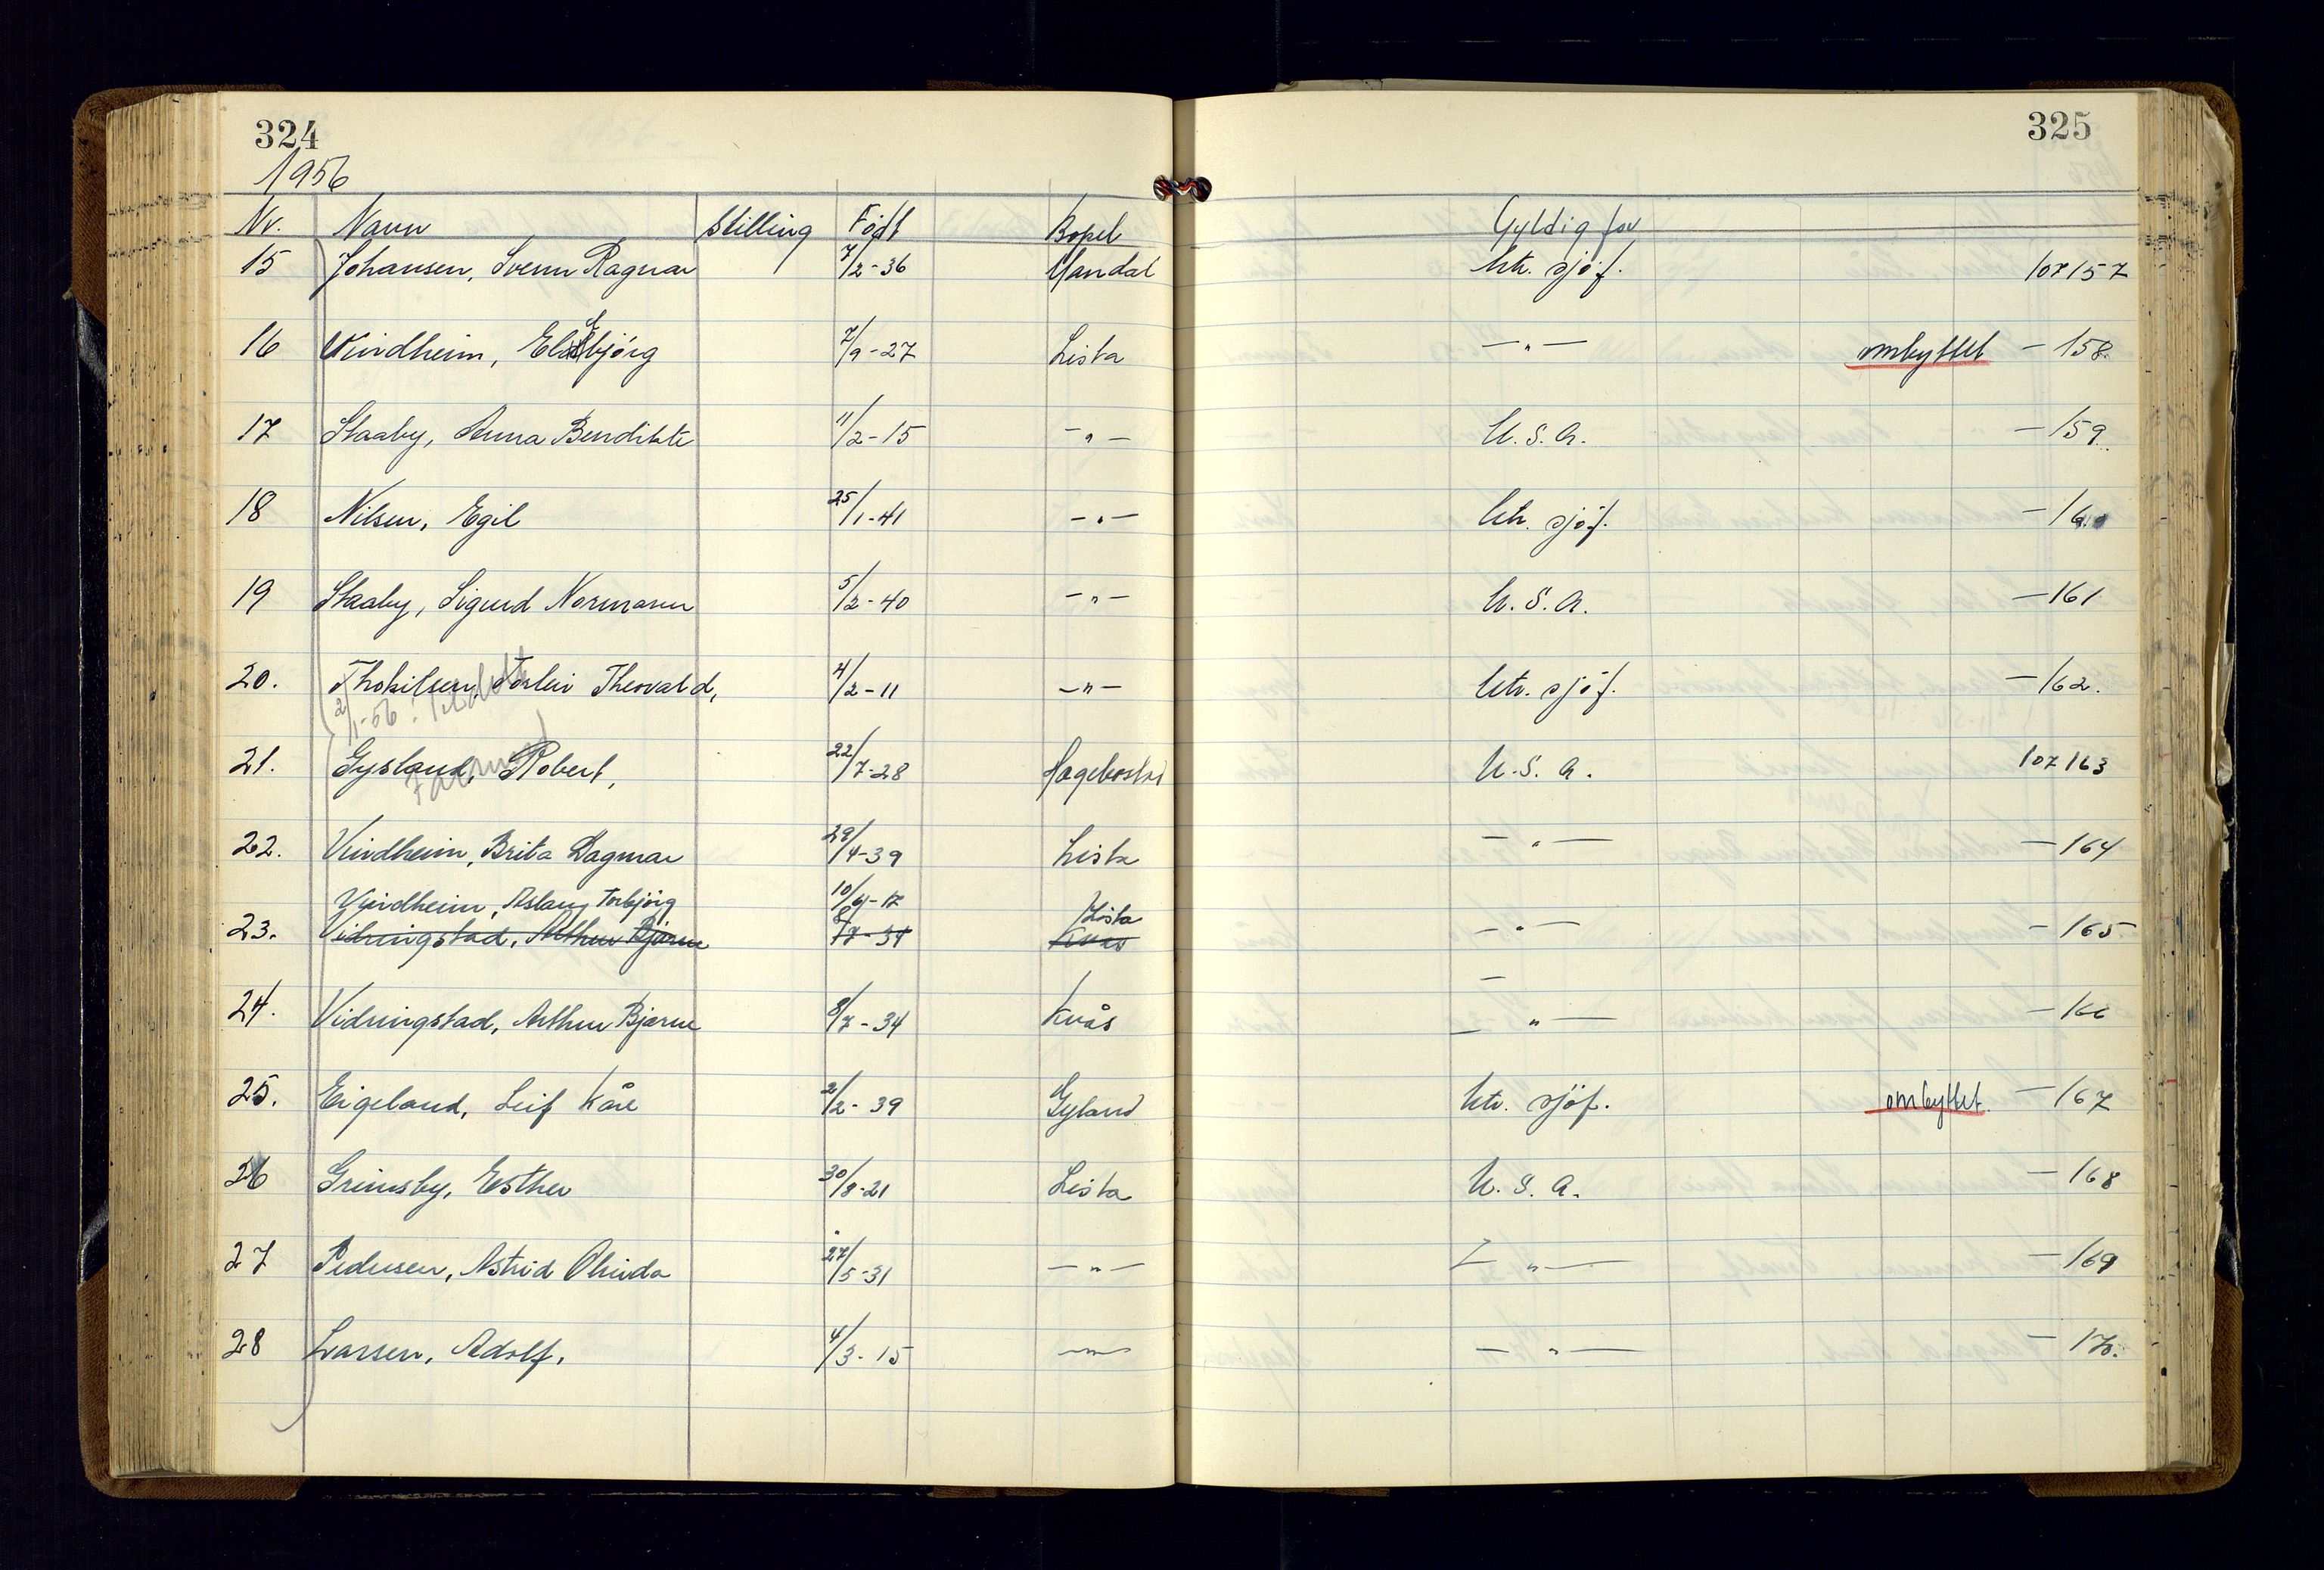 324
325
1956
Nr. Navn Stilling Født Bopel Gyldig for
15 Johansen, Svenn Ragnar 7/2-36 Mandal Utr. sjøf. 107157
16 Vindheim, 7/9-27 Lista —"— ombyttet — 158.
17 Staaby, Anna Bendikte 11/2-15 —"— U.S.A. — 159.
18 Nilsen, Egil 25/1-41 —"— Utr. sjøf. — 160
19 Staaby, Sigurd Normann 5/2-40 —"— U.S.A. — 161
20. Thorkilsen, Torleiv Theovald, 4/2-11 —"— Utr. sjøf. — 162.
2/1-56
21. Gysland, Robert, 22/7-28 U.S.A. 107163
22. Vindheim, Brita Dagmar 29/4-39 Lista —"— — 164
Vindheim, Aslaug Torbjörg 10/6-17 Lista
23. Vidringstad, Arthur Bjarne 8/7-34 Kvås —"— — 165
24. Vidringstad, Arthur Bjarne 8/7-34 Kvås —"— — 166
25. Eigeland, Leif Kåre 2/2-39 Gyland Utr. sjöf. ombyttet. — 167
26 Grimsby, Esther 30/8-21 Lista U.S.A. — 168
27 Pedersen, Astrid 27/5-31 —"— —"— — 169
28 Larsen, Adolf, 4/3-15 —"— —"— — 170.